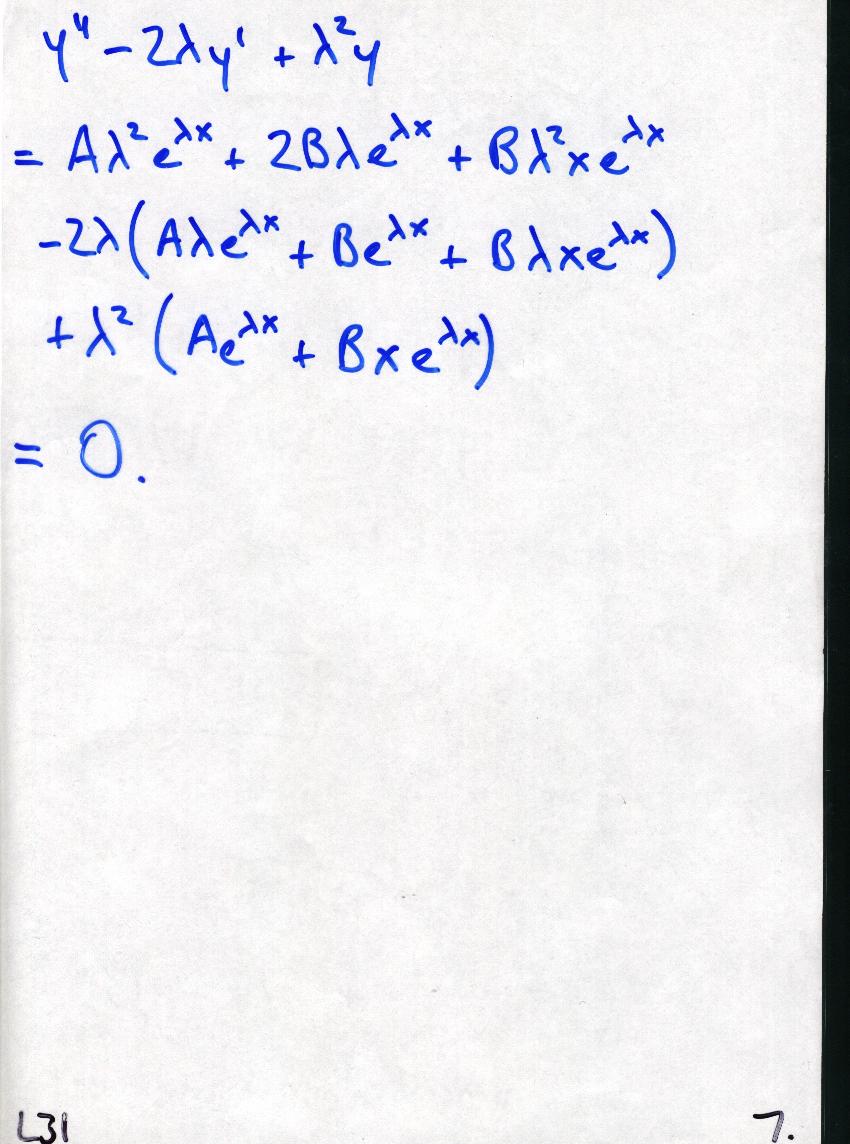 y'' - 2λy' + λ²y
= Aλ²e^{λx} + 2Bλe^{λx} + Bλ²xe^{λx}
-2λ(Aλe^{λx} + Be^{λx} + Bλxe^{λx})
+ λ²(Ae^{λx} + Bxe^{λx})
= 0.
L31 7.